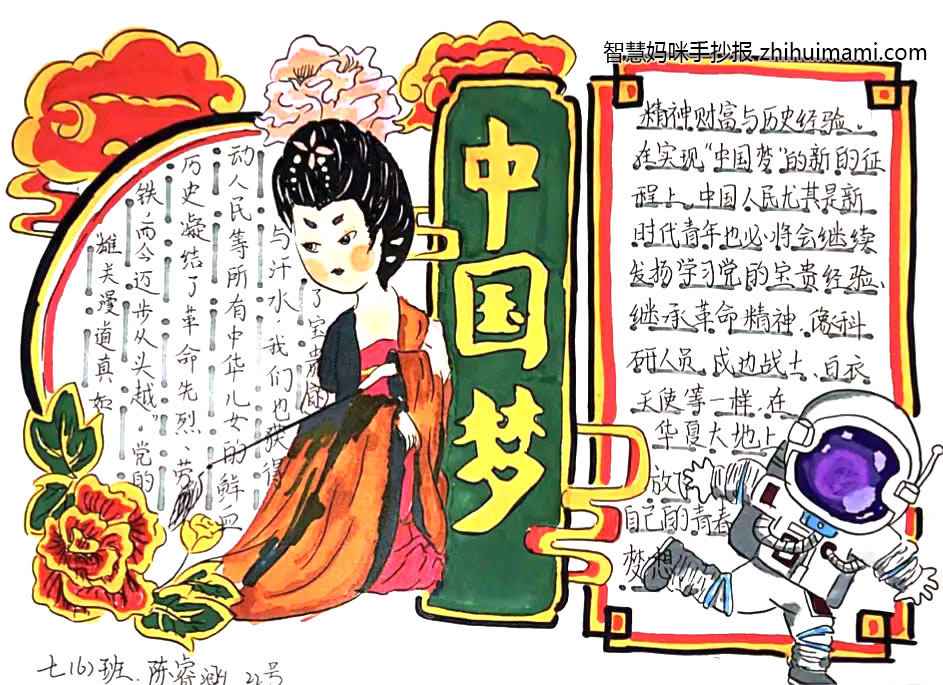 智慧妈咪手抄报 zhihuimami.com
中国梦
雄关漫道真如
铁,而今迈步从头越”。党的
历史凝结了革命先烈、劳
动人民等所有中华儿女的鲜血
与汗水,我们也获得
了宝贵的
精神财富与历史经验。
在实现“中国梦”的新的征
程上,中国人民尤其是新
时代青年也必将会继续
发扬学习党的宝贵经验、
继承革命精神,像科
研人员、戍边战士、白衣
天使等一样,在
华夏大地上
放
自己的青春
梦想
七(6)班 陈睿涵 22号